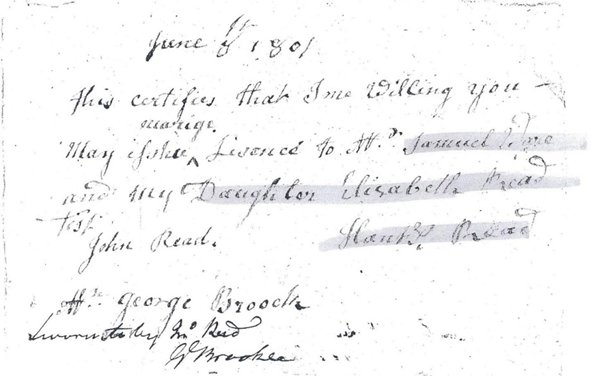 June 8th 1801
This certifies that I me Willing you
marige.
May ishue ^ Lisence to Mr. Samuel
and my Daughter Elizabeth Read
Test
John Read. Hanky Read
Mr George Broock
Sworn to by Jno Read
G Brooke